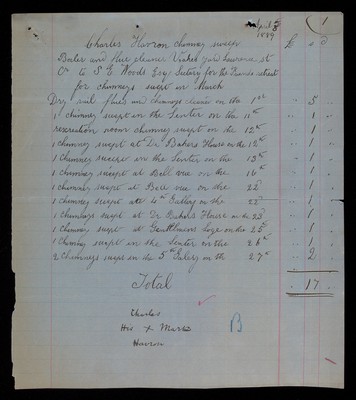 April 3
1889
Charles Havron chimney sweep £ s d
Boiler and flue cleaner Vicked yard Lawrence st
Cr to S E Woods Esq Sectery for the Friends retreat
for chimneys swept in March
Dry and flues and chimneys cleaned on the 1st 5
1 chimney swept in the Senter on the 11th 1
recreation room chimney swept on the 12th 1
1 chimney swept at Dr Bakers House on the 12th 1
1 chimney swept in the Senter on the 13th 1
1 chimney swept at Bell vue on the 16th 1
1 chimney swept at Bell vue on the 22 1
1 chimney swept at 4th Gallery on the 22 1
1 chimney swept at Dr Bakers House on the 23 1
1 chimney swept at Gentlemens Loge on the 25 1
1 chimney swept in the Senter on the 26th 1
2 chimneys swept in the 5th Galery on the 27th 2
Total 17
Charles
His x Mark
Havron
B